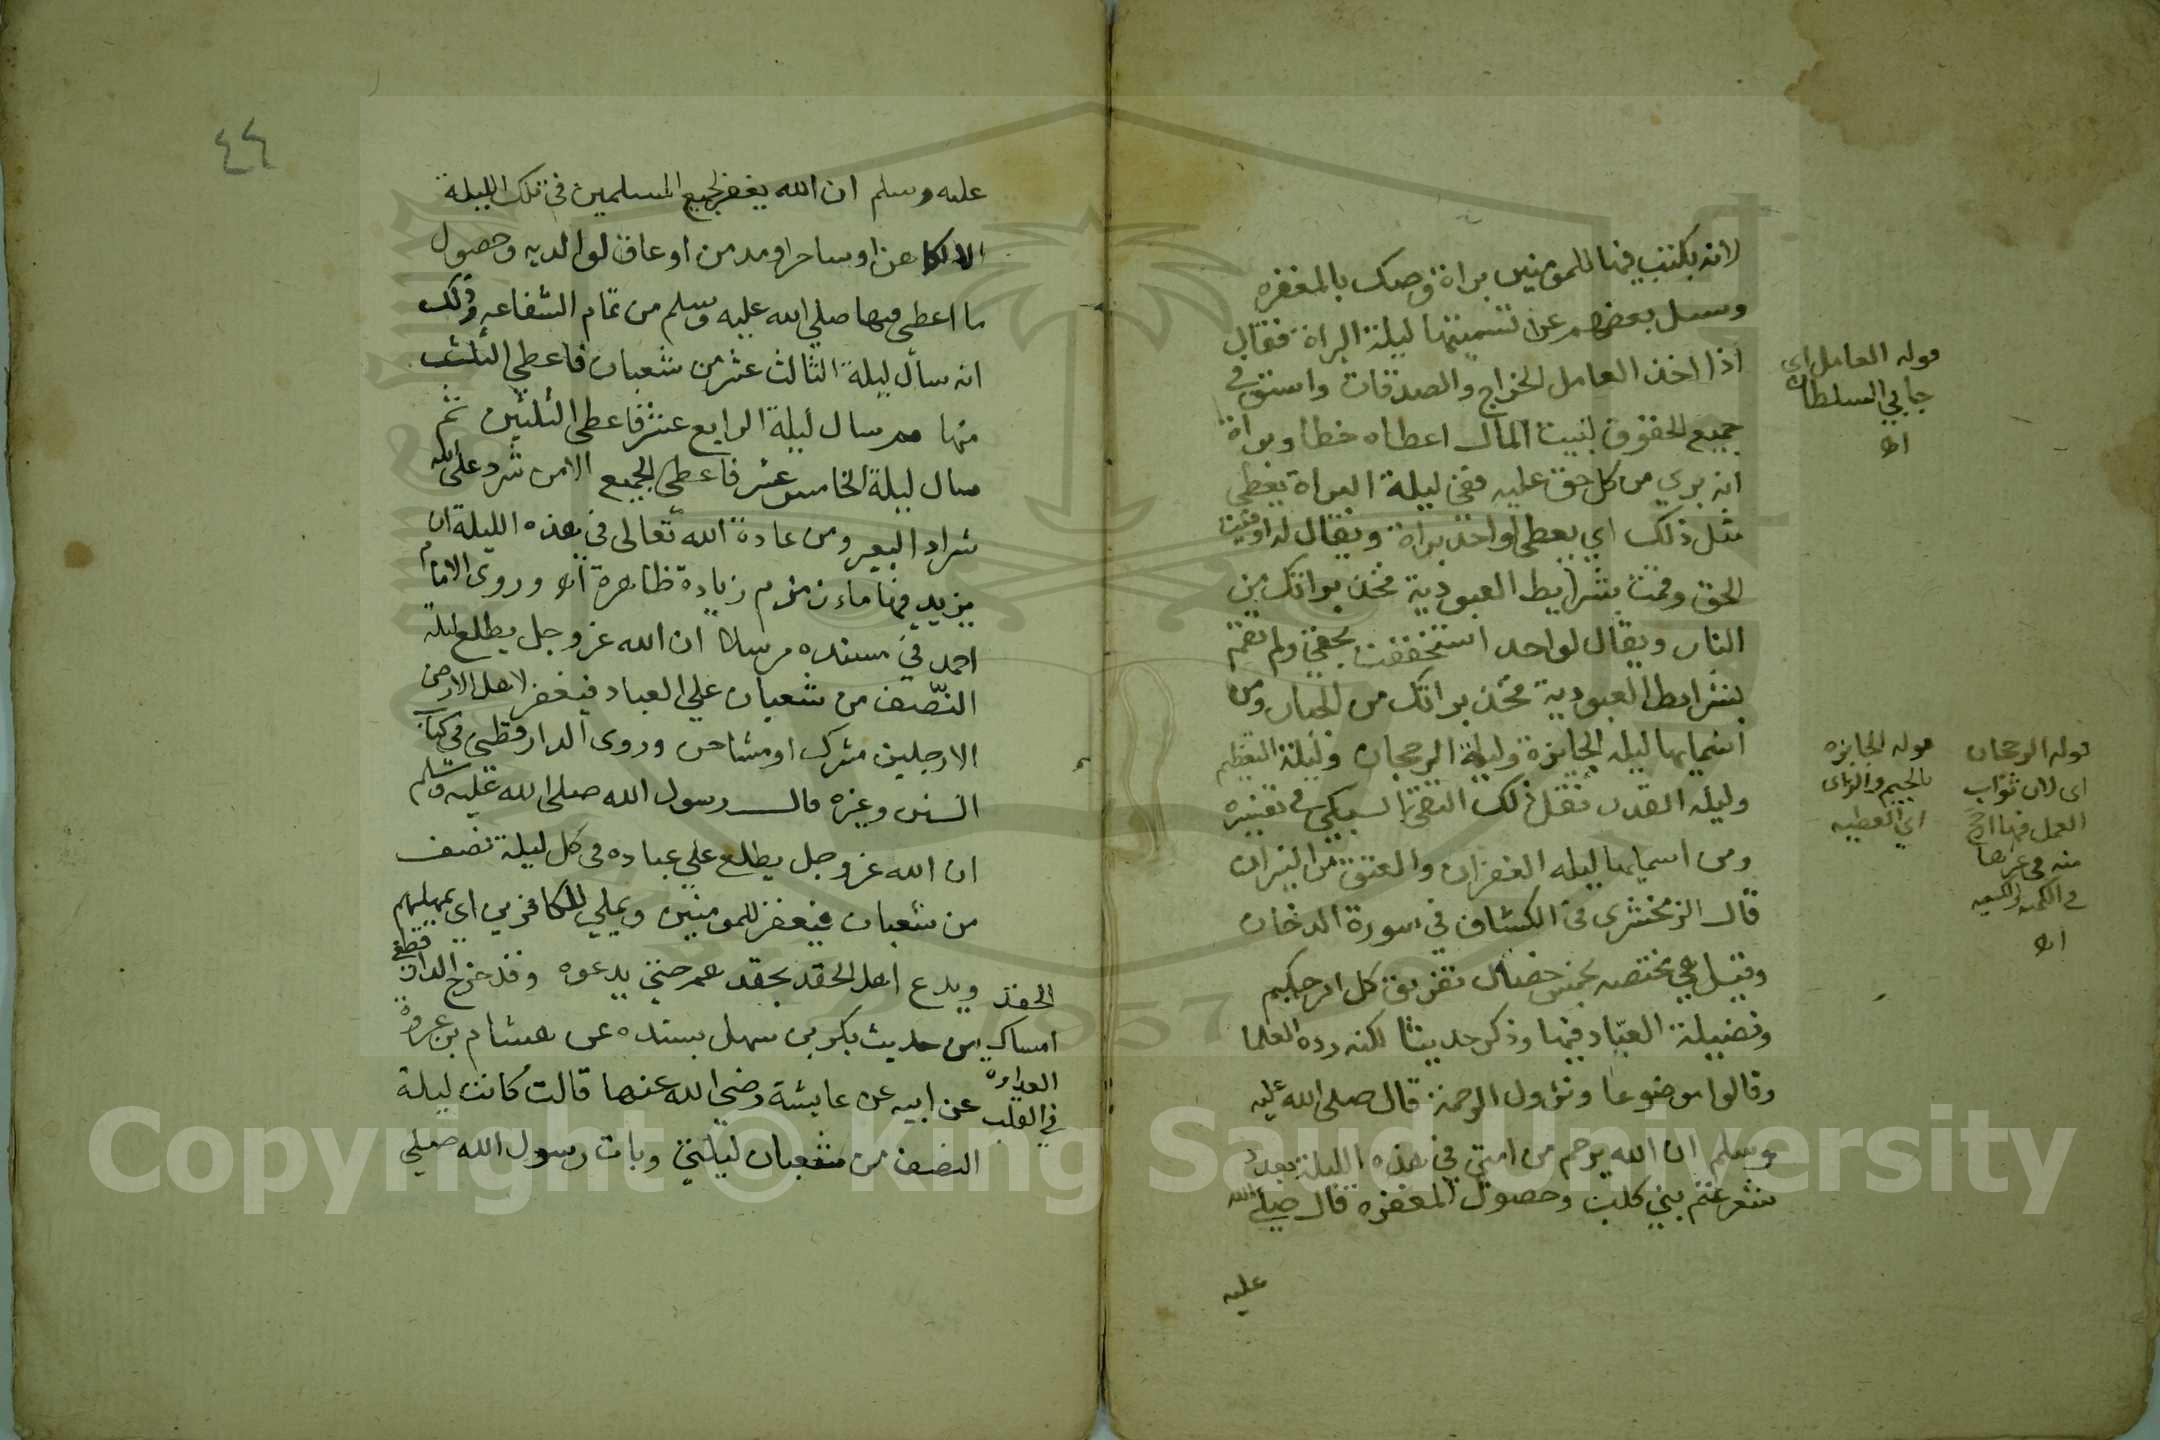 لانه يكتب فيها للمومنين براة وصك بالمغفره
وسيل بعضهم عن تسميتها ليلة البراة فقال
اذا اخذ العامل الخراج والصدقات واستوفي
جميع الحقوق لبيت المال اعطاه خطا وبراة
انه بري من كل حق عليه ففي ليلة البراة يعطي
مثل ذلك اي يعطي لواحد براة ويقال له اوفيت
الحق وقمت بشرايط العبودية فخذ براتك من
النار ويقال لواحد استخففت بحقي ولم تقم
بشرايط العبودية فخذ براتك من الجنان ومن
اسمايها ليله الجايزة وليلة الرجحان وليلة التعظيم
وليله القدر نقل ذلك التقي السبكي في تفسيره
ومن اسمايها ليله الغفران والعتق من النيران
قال الزمخشري في الكشاف في سورة الدخان
وقيل هي مختصه بخمس خصال تفريق كل امر حكيم
وفضيلة العبّاد فيها وذكر حديثا لكنه رده العلما
وقالوا موضوعا ونزول الرحمة قال صلى الله عليه
وسلم ان الله يرحم من امتي في هذه الليلة بعدد
شعر غنم بني كلب وحصول المغفره قال صلى الله
عليه
قوله العامل اي
جابي السلطان
اه
قوله الجايزه
بالجيم والزاي
اي العطيه
قوله الرجحان
اي لان ثواب
العمل فيها ارجح
منه في غيرها
في الكمية والكيفيه
اه
٤٤
عليه وسلم ان الله يغفر لجميع المسلمين في تلك الليلة
الا لكاهن او ساحر او مدمن او عاق لوالديه وحصول
ما اعطي فيها صلي الله عليه وسلم من تمام الشفاعه وذلك
انه سأل ليلة الثالث عشر من شعبان فاعطي الثلث
منها ثم سال ليلة الرابع عشر فاعطي الثلثين ثم
سال ليلة الخامس عشر فاعطي الجميع الا من شرد علي الله
شراد البعير ومن عادة الله تعالى في هذه الليلة ان
يزيد فيها ماء زمزم زيادة ظاهرة اه وروى الامام
احمد في مسنده مرسلا ان الله عز وجل يطلع ليلة
النصف من شعبان علي العباد فيغفر لاهل الارض
الا رجلين مشرك او مشاحن وروى الدارقطني في كتاب
السنن وغيره قال رسول الله صلى الله عليه وسلم
ان الله عز وجل يطلع علي عباده في كل ليلة نصف
من شعبان فيغفر للمومنين ويملي للكافرين اي يمهلهم
ويدع اهل الحقد بحقدهم حتي يدعوه وقد خرج الدارقطني
من حديث بكر بن سهل بسنده عن هشام بن عروة
عن ابيه عن عايشة رضي الله عنها قالت كانت ليلة
النصف من شعبان ليلتي وبات رسول الله صلي
الحقد
امساك
العداوه
في القلب
Copyright © King Saud University
1957